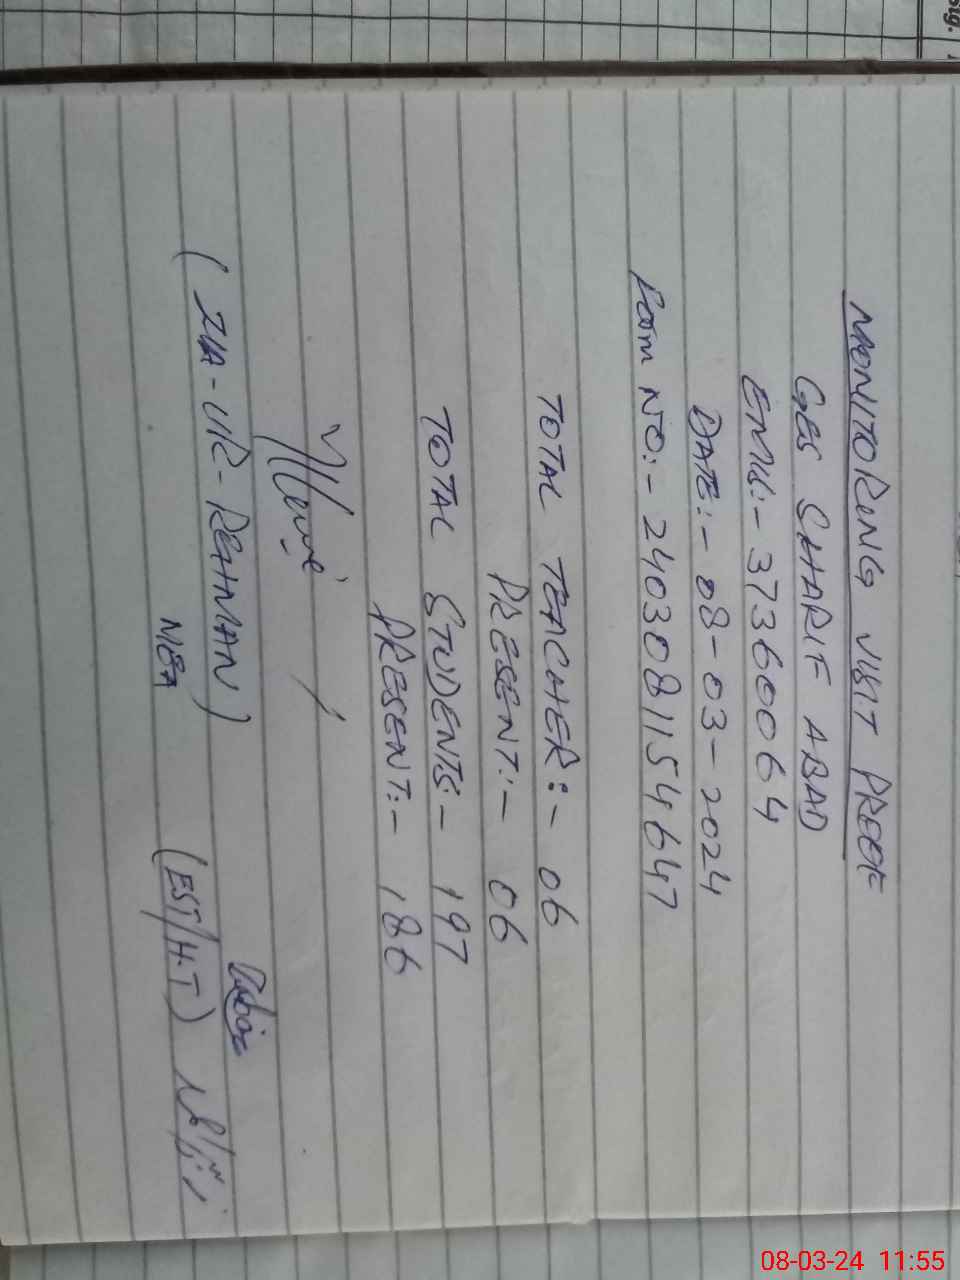 MONITORING VISIT PROOF
GES SHARIF ABAD
EMIS:- 37360064
DATE:- 08-03-2024
Form NO:- 2403081154647
TOTAL TEACHER:- 06
PRESENT:- 06
TOTAL STUDENTS:- 197
PRESENT:- 186
(ZIA-UR-REHMAN)
MEA
(EST/H.T)
08-03-24 11:55